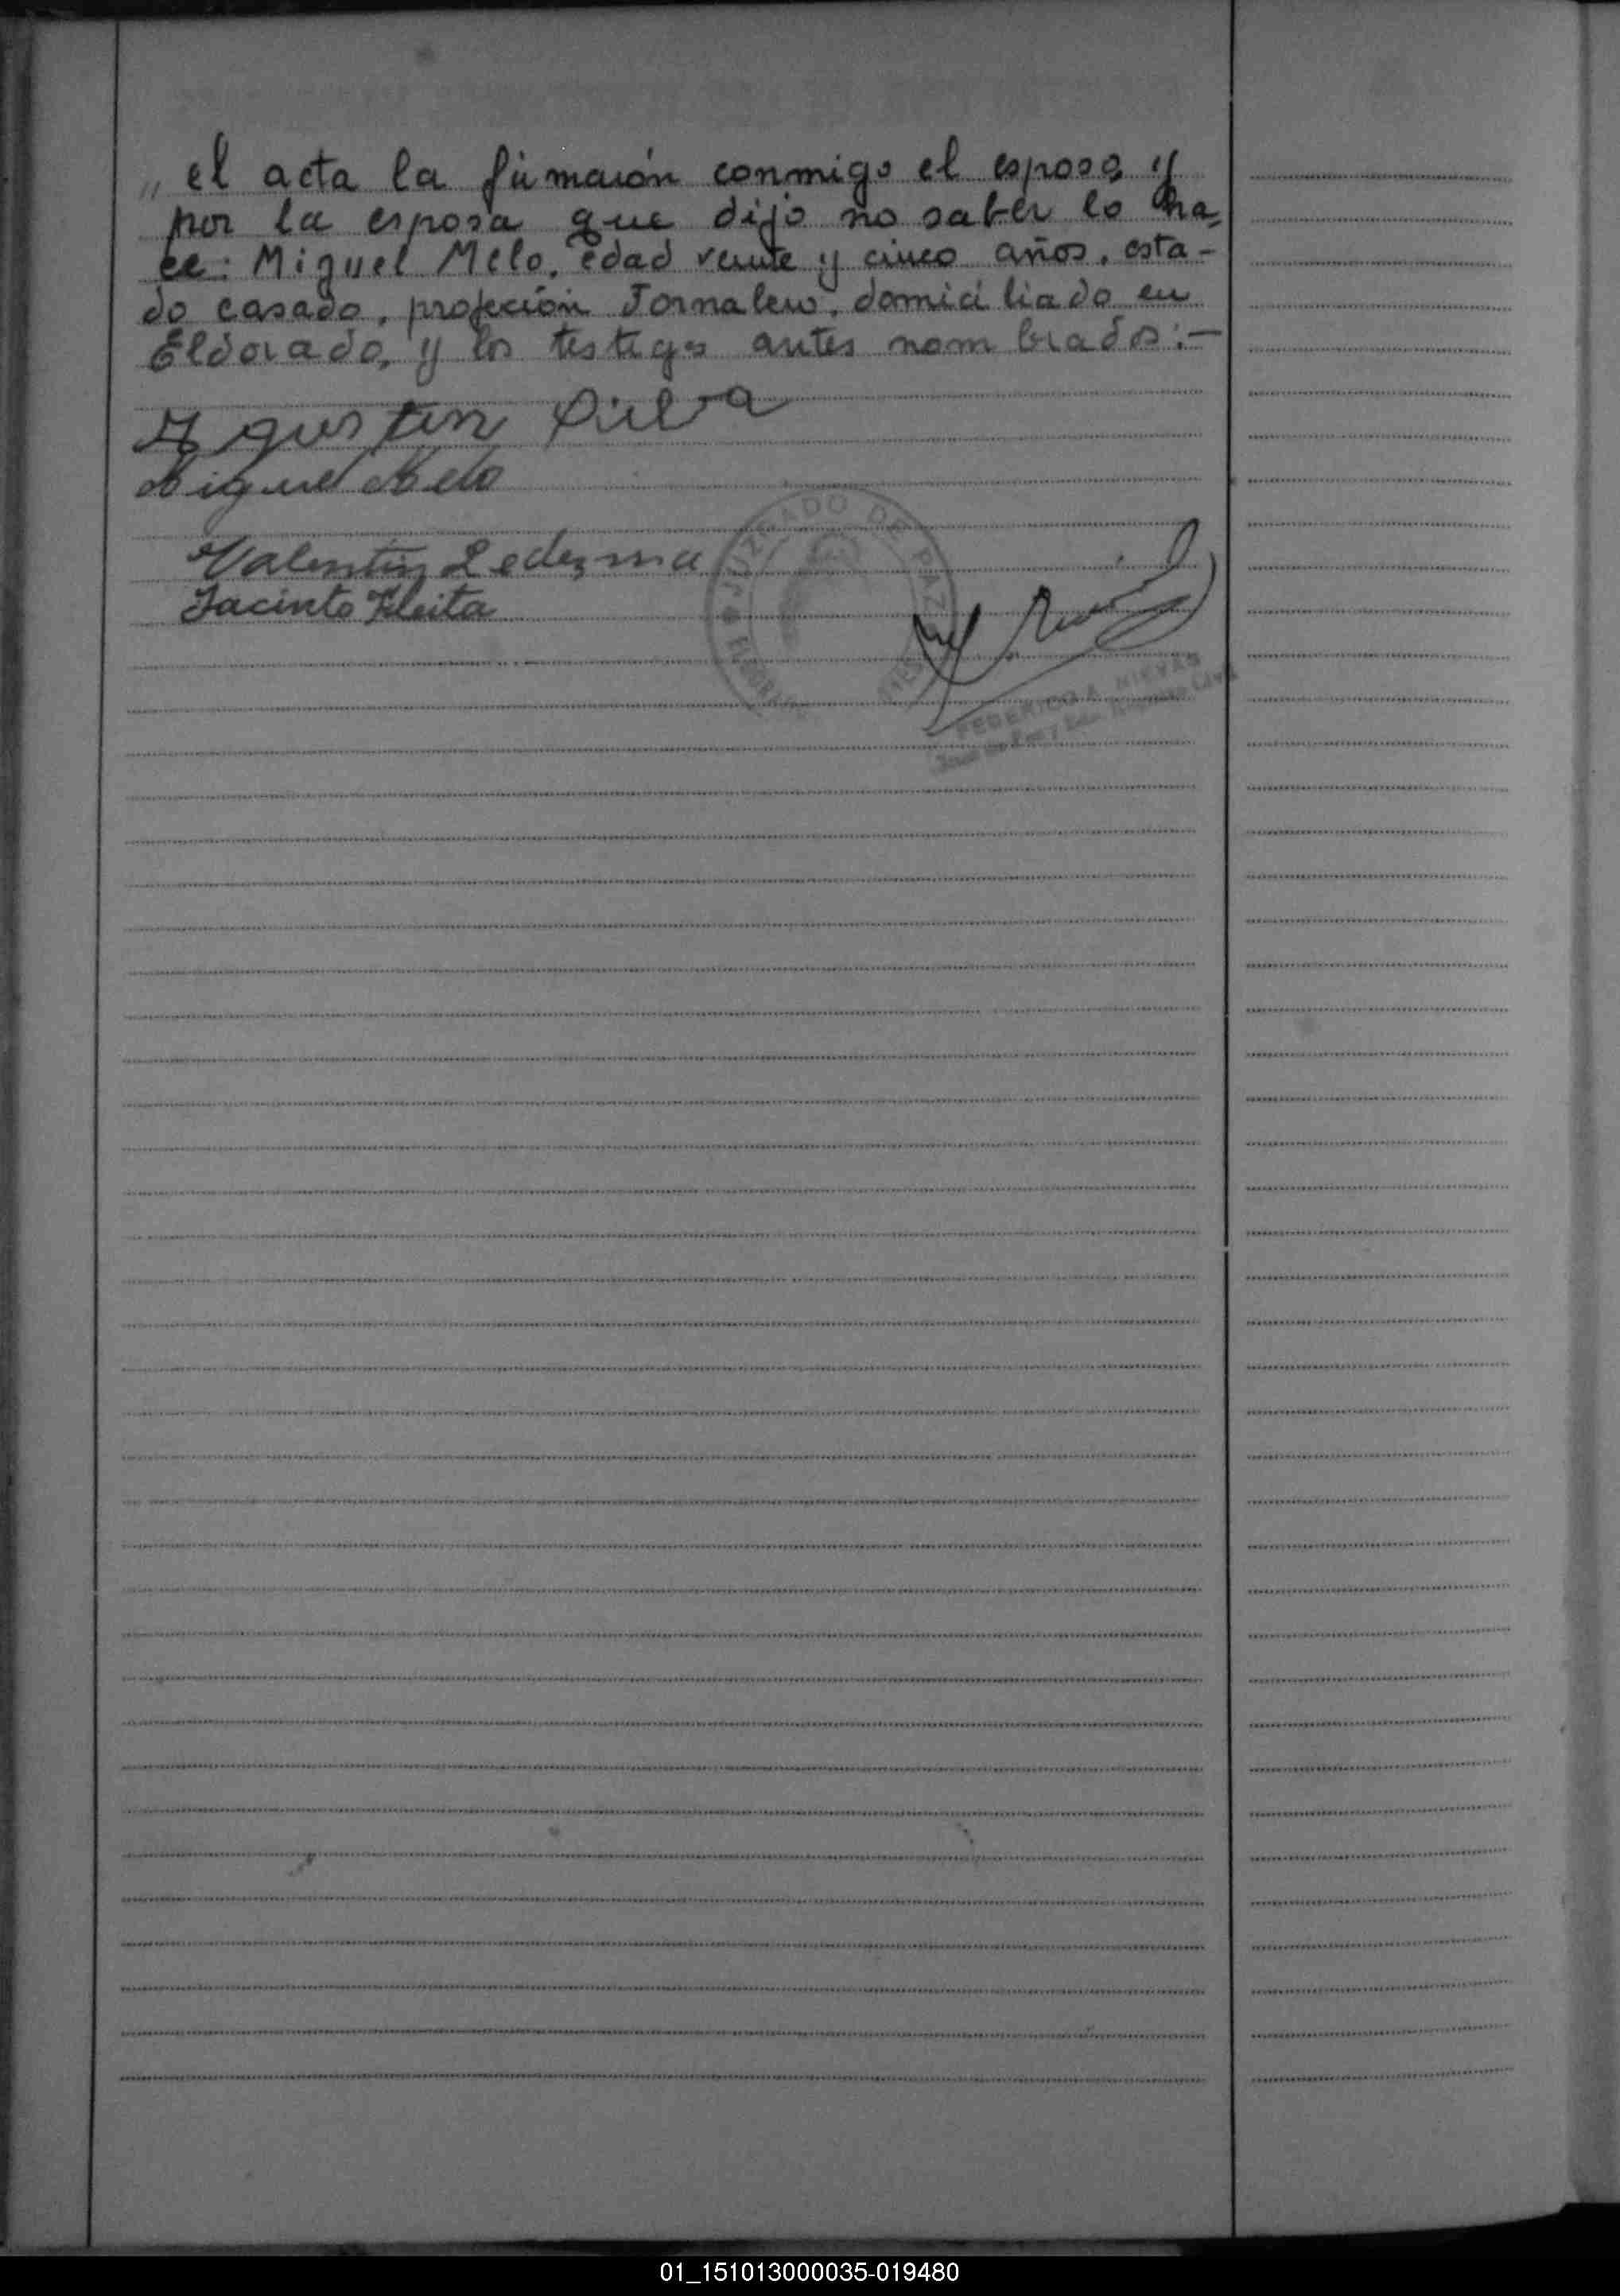 „ el acta la firmarón conmigo el esposo y
por la esposa que dijo no saber lo ha=
ce: Miguel Melo, edad veinte y cinco años, esta-
do casado, profeción Jornalero, domiciliado en
Eldorado, y los testigos antes nombrados:-
Agustin Silva
Miguel Melo
Valentin Ledezma
Jacinto Fleita
JUZGADO DE PAZ
ELDORADO
FEDERICO A. NIEVAS
01_151013000035-019480